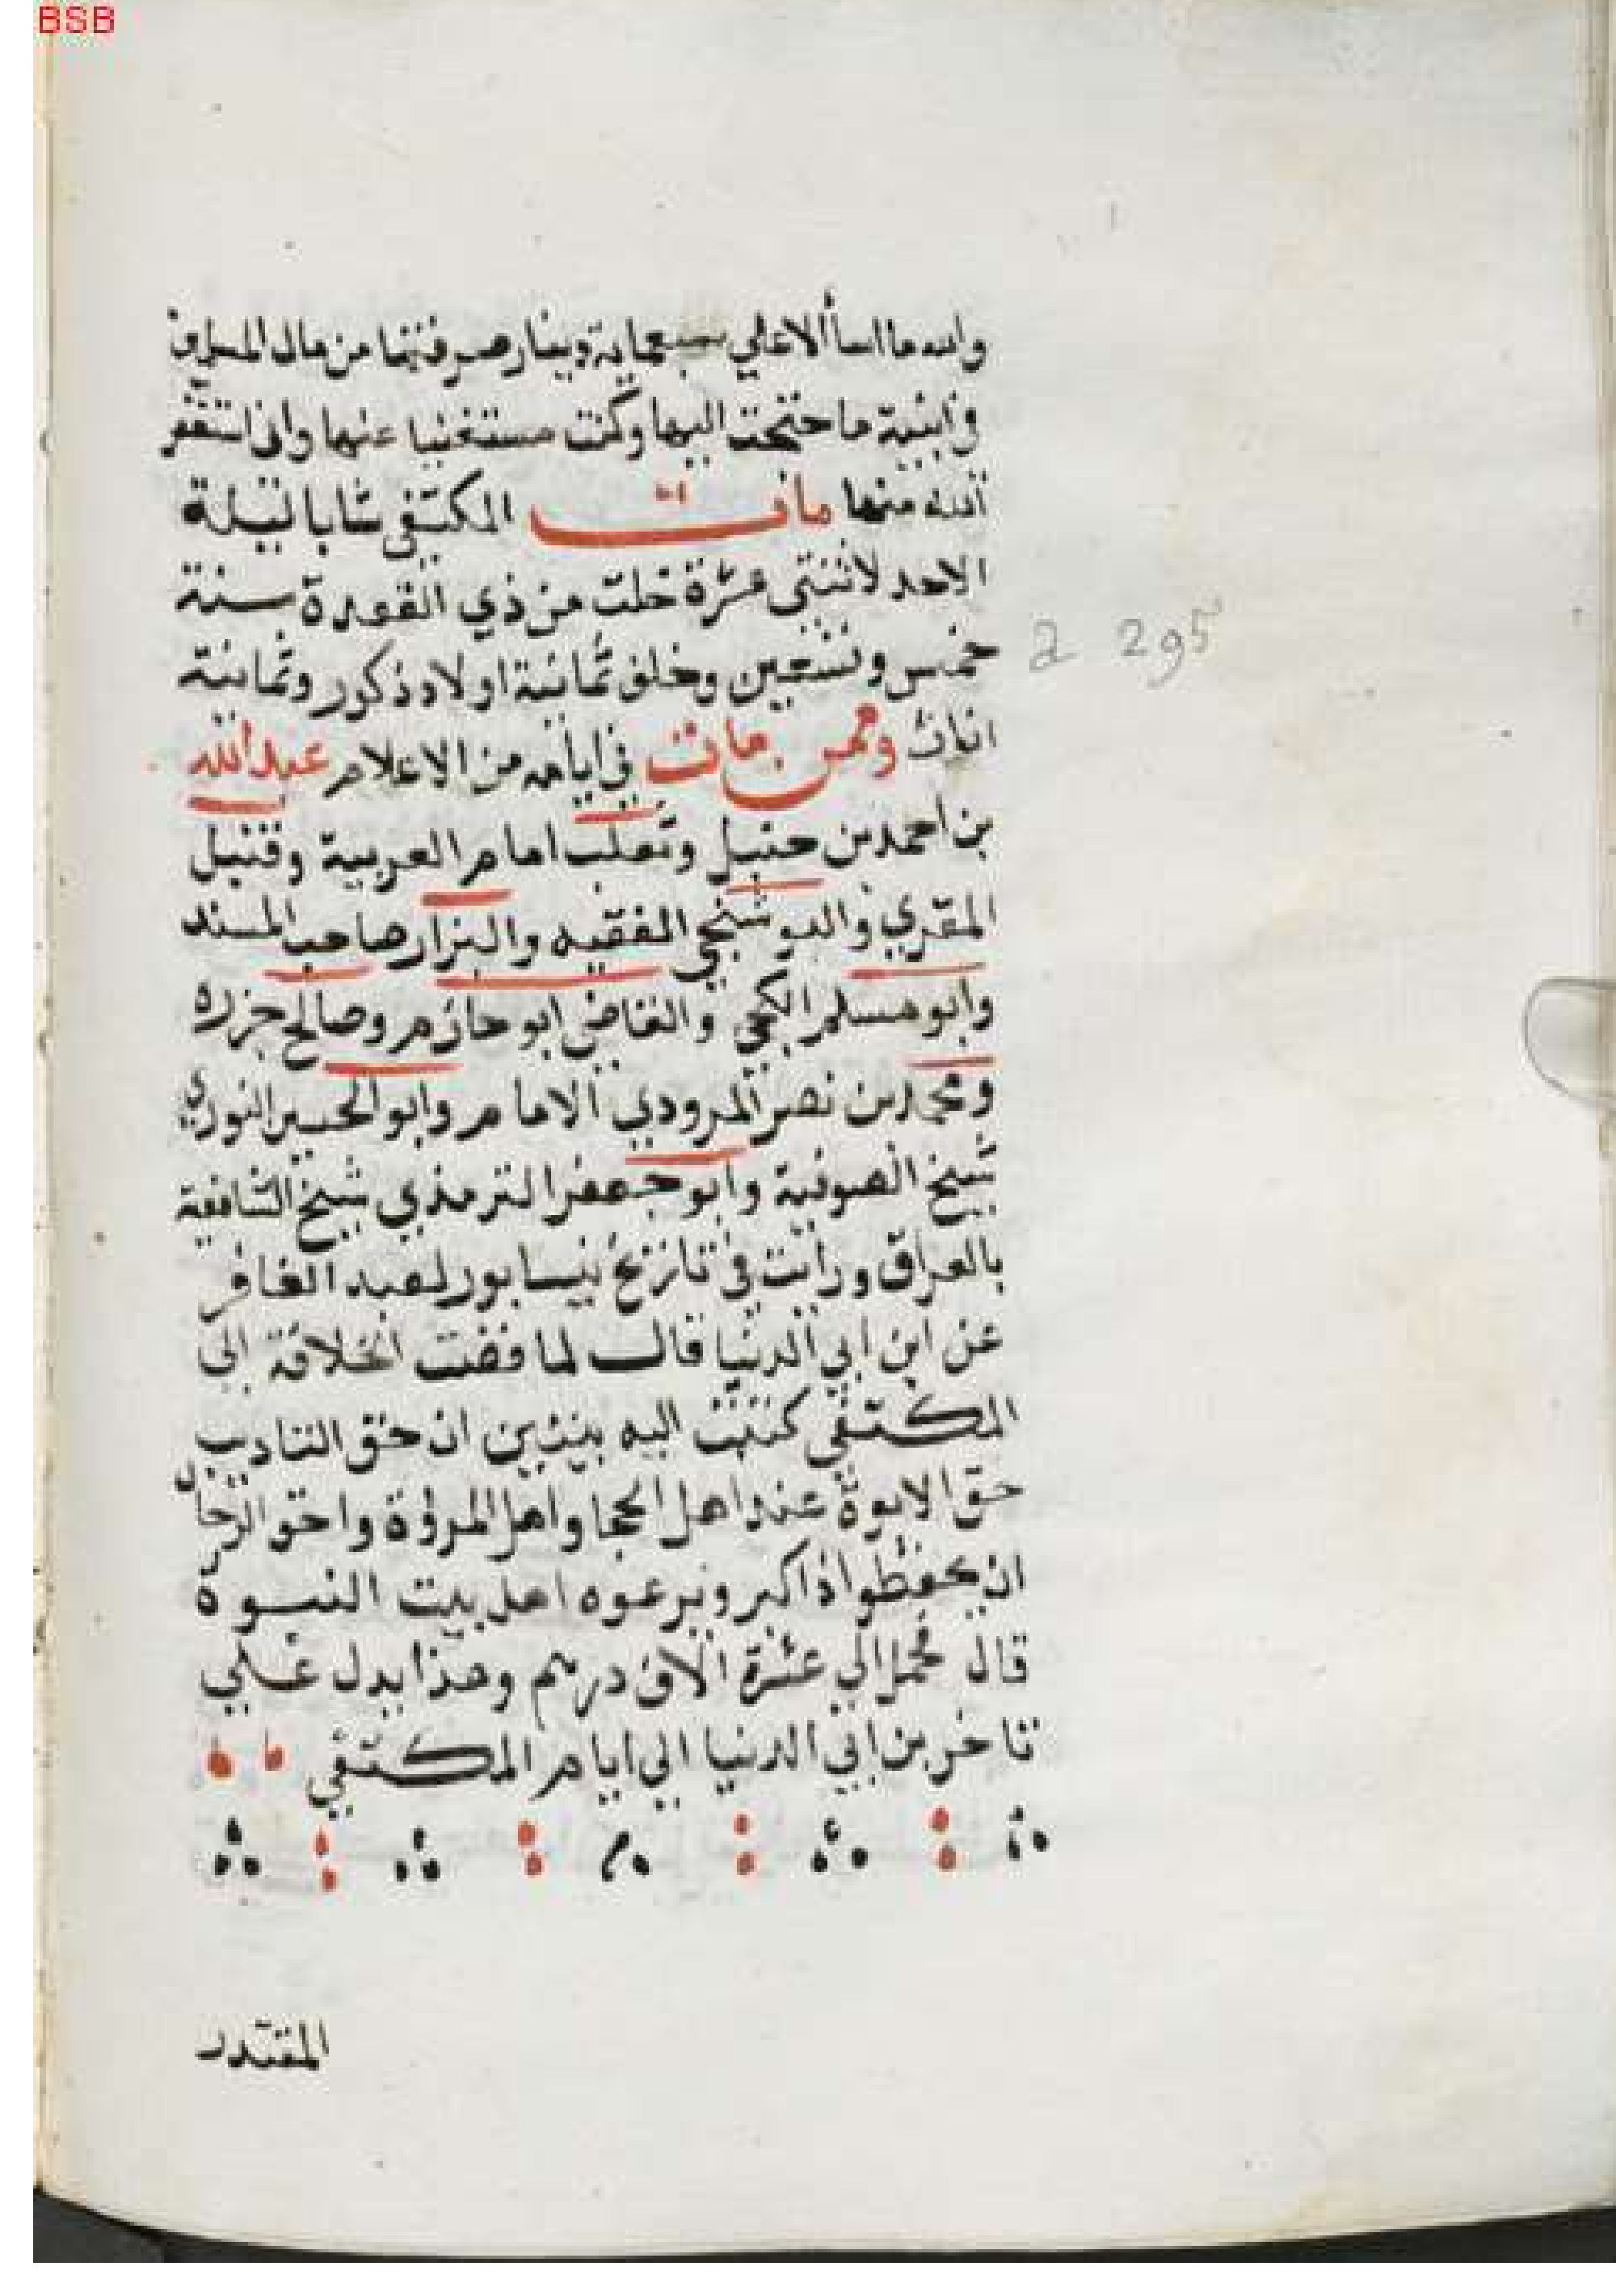 BSB
والله ما اسأ الا علي سبعماية دينار صرفتها من مال المسلمين
في ابنية ما حتجت اليها وكنت مستغنيا عنها واني استغفر
الله منها مات المكتفي شابا ليلة
الاحد لاثنتي عشرة خلت من ذي القعدة سنة
خمس وتسعين وخلف ثمانية اولاد ذكور وثمانية
2 295
اناث وممن مات في ايامه من الاعلام عبد الله
بن احمد بن حنبل وثعلب امام العربية وقنبل
المقري والبوشنجي الفقيه والبزار صاحب المسند
وابو مسلم الكجي والقاضي ابو حازم وصالح جزره
ومحمد بن نصر المرودي الامام وابو الحسين النوري
شيخ الصوفية وابو جعفر الترمذي شيخ الشافعية
بالعراق ورايت في تاريخ نيسابور لعبد الغافر
عن ابن ابي الدنيا قال لما افضت الخلافة الى
المكتفي كتبت اليه بيتين ان حق التاديب
حق الابوة عند اهل الحجا واهل المروة واحق الرجال
ان يحفظوا ذاكم ويرعوه اهل بيت النبوة
قال فحمل الي عشرة الاف درهم وهذا يدل علي
تاخر بن ابي الدنيا الي ايام المكتفي
المقتدر